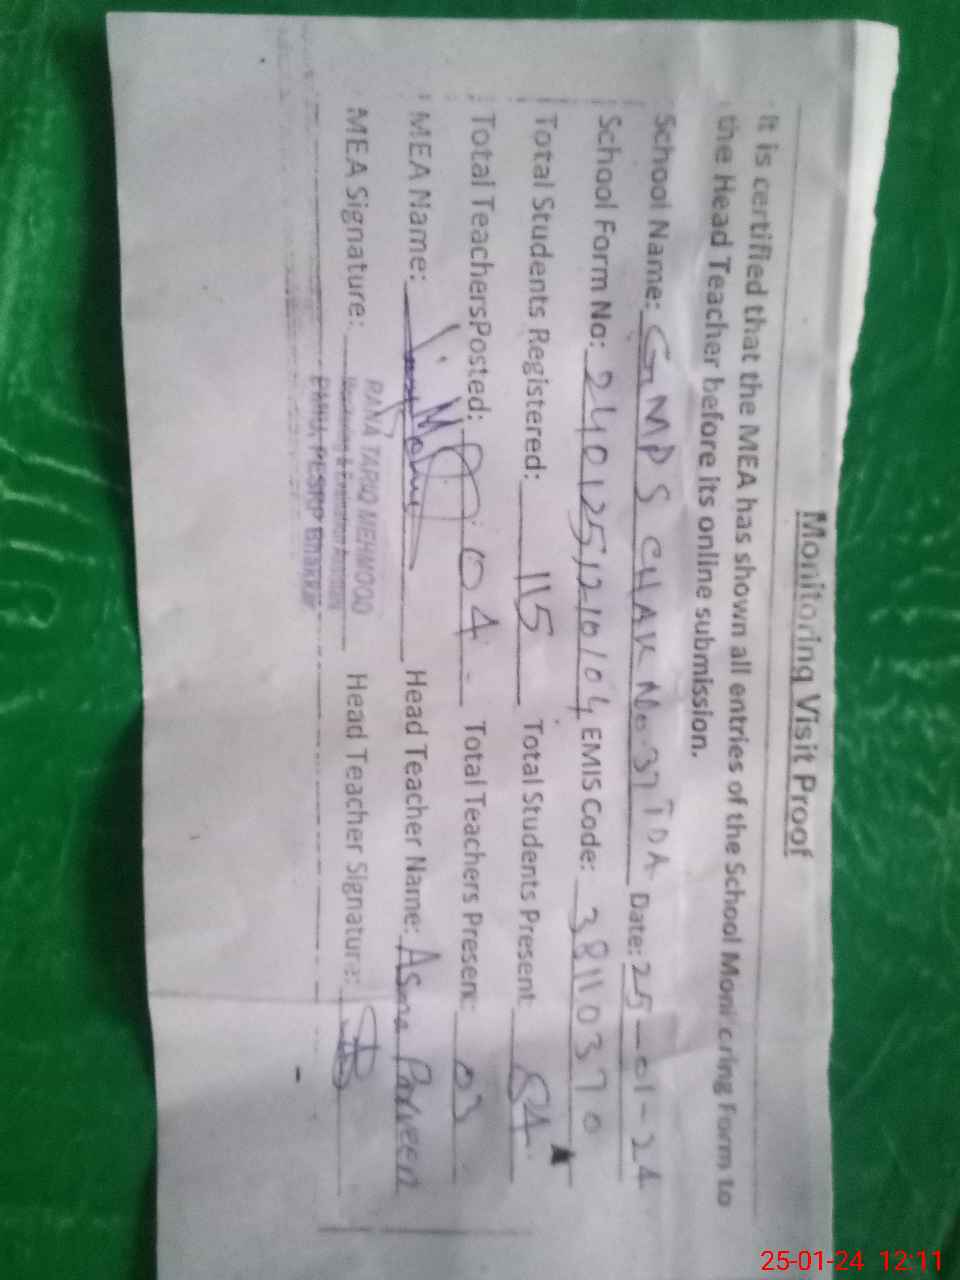 Monitoring Visit Proof
It is certified that the MEA has shown all entries of the School Monitoring Form to
the Head Teacher before its online submission.
School Name: GMPS CHAK No 37 TDA Date: 25-01-24
School Form No: 2401251210104 EMIS Code: 38110370
Total Students Registered: 115 Total Students Present 84
Total TeachersPosted: 04 Total Teachers Present: 03
MEA Name: Head Teacher Name: Asma Parveen
MEA Signature: Head Teacher Signature:
RANA TARIQ MEHMOOD
Monitoring & Evaluation Assistant
PMIU, PESRP Bhakkar
25-01-24 12:11